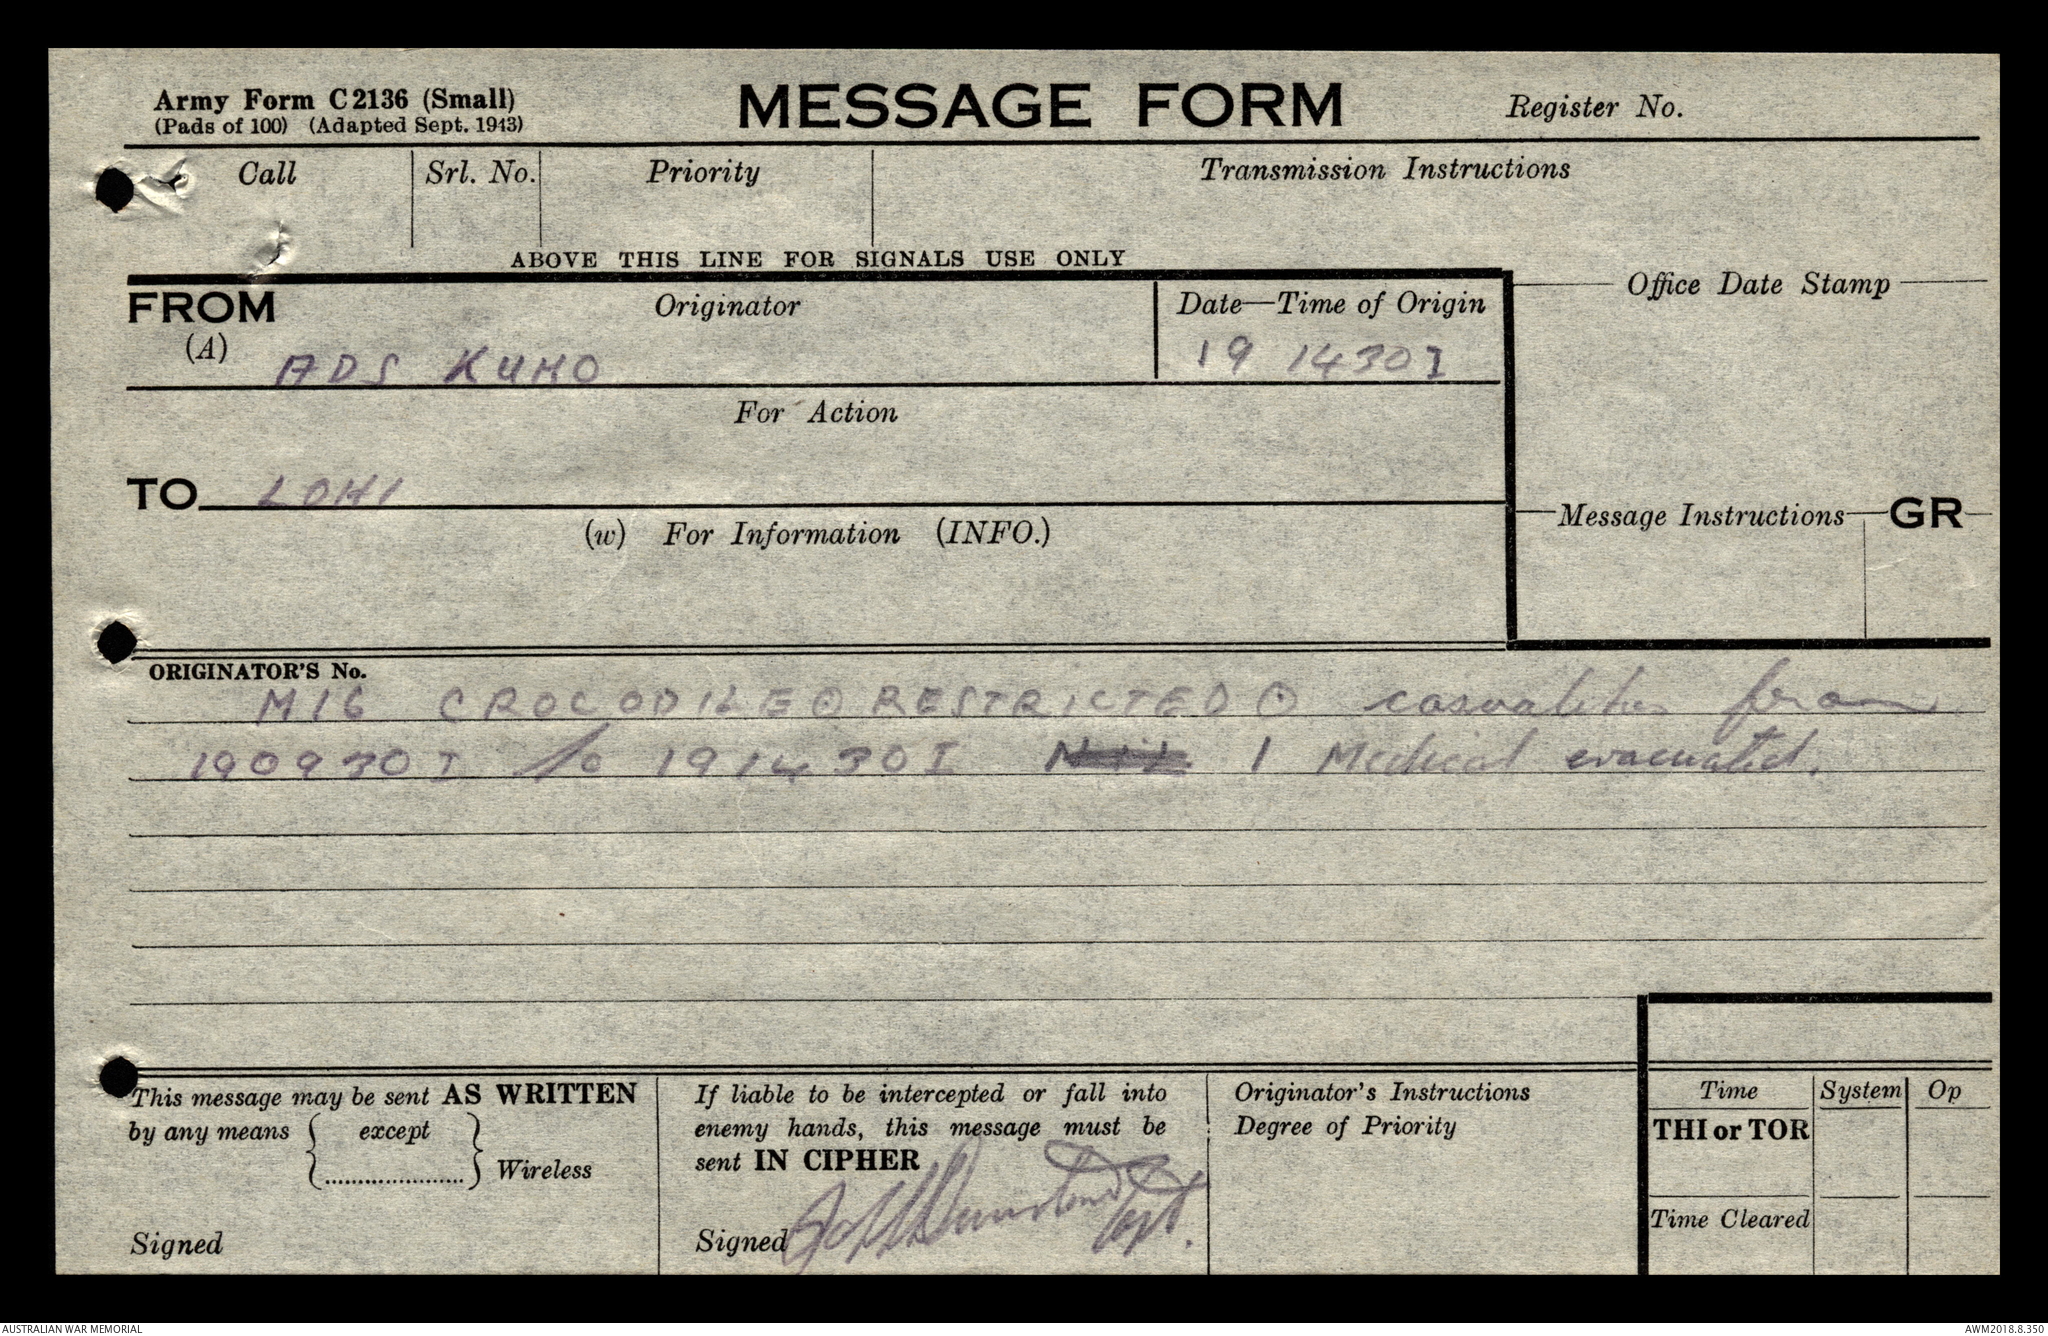 Army Form C2136 (Small)
(Pads of 100) (Adapted Sept. 1943)
MESSAGE FORM
Register No.
Call Srl. No. Priority Transmission Instructions
ABOVE THIS LINE FOR SIGNALS USE ONLY
FROM Originator Date—Time of Origin Office Date Stamp
(A) ADS KUHO 19 1430I
For Action
TO LOHI
Message Instructions GR
(w) For Information (INFO.)
ORIGINATOR'S No.
M16 CROCODILE ⊙ RESTRICTED ⊙ casualties from
190930I to 191430I Nil 1 Medical evacuated.
This message may be sent AS WRITTEN
by any means { except
..................... } Wireless
Signed
If liable to be intercepted or fall into
enemy hands, this message must be
sent IN CIPHER
Signed Capt.
Originator's Instructions
Degree of Priority
Time System Op
THI or TOR
Time Cleared
AUSTRALIAN WAR MEMORIAL
AWM2018.8.350